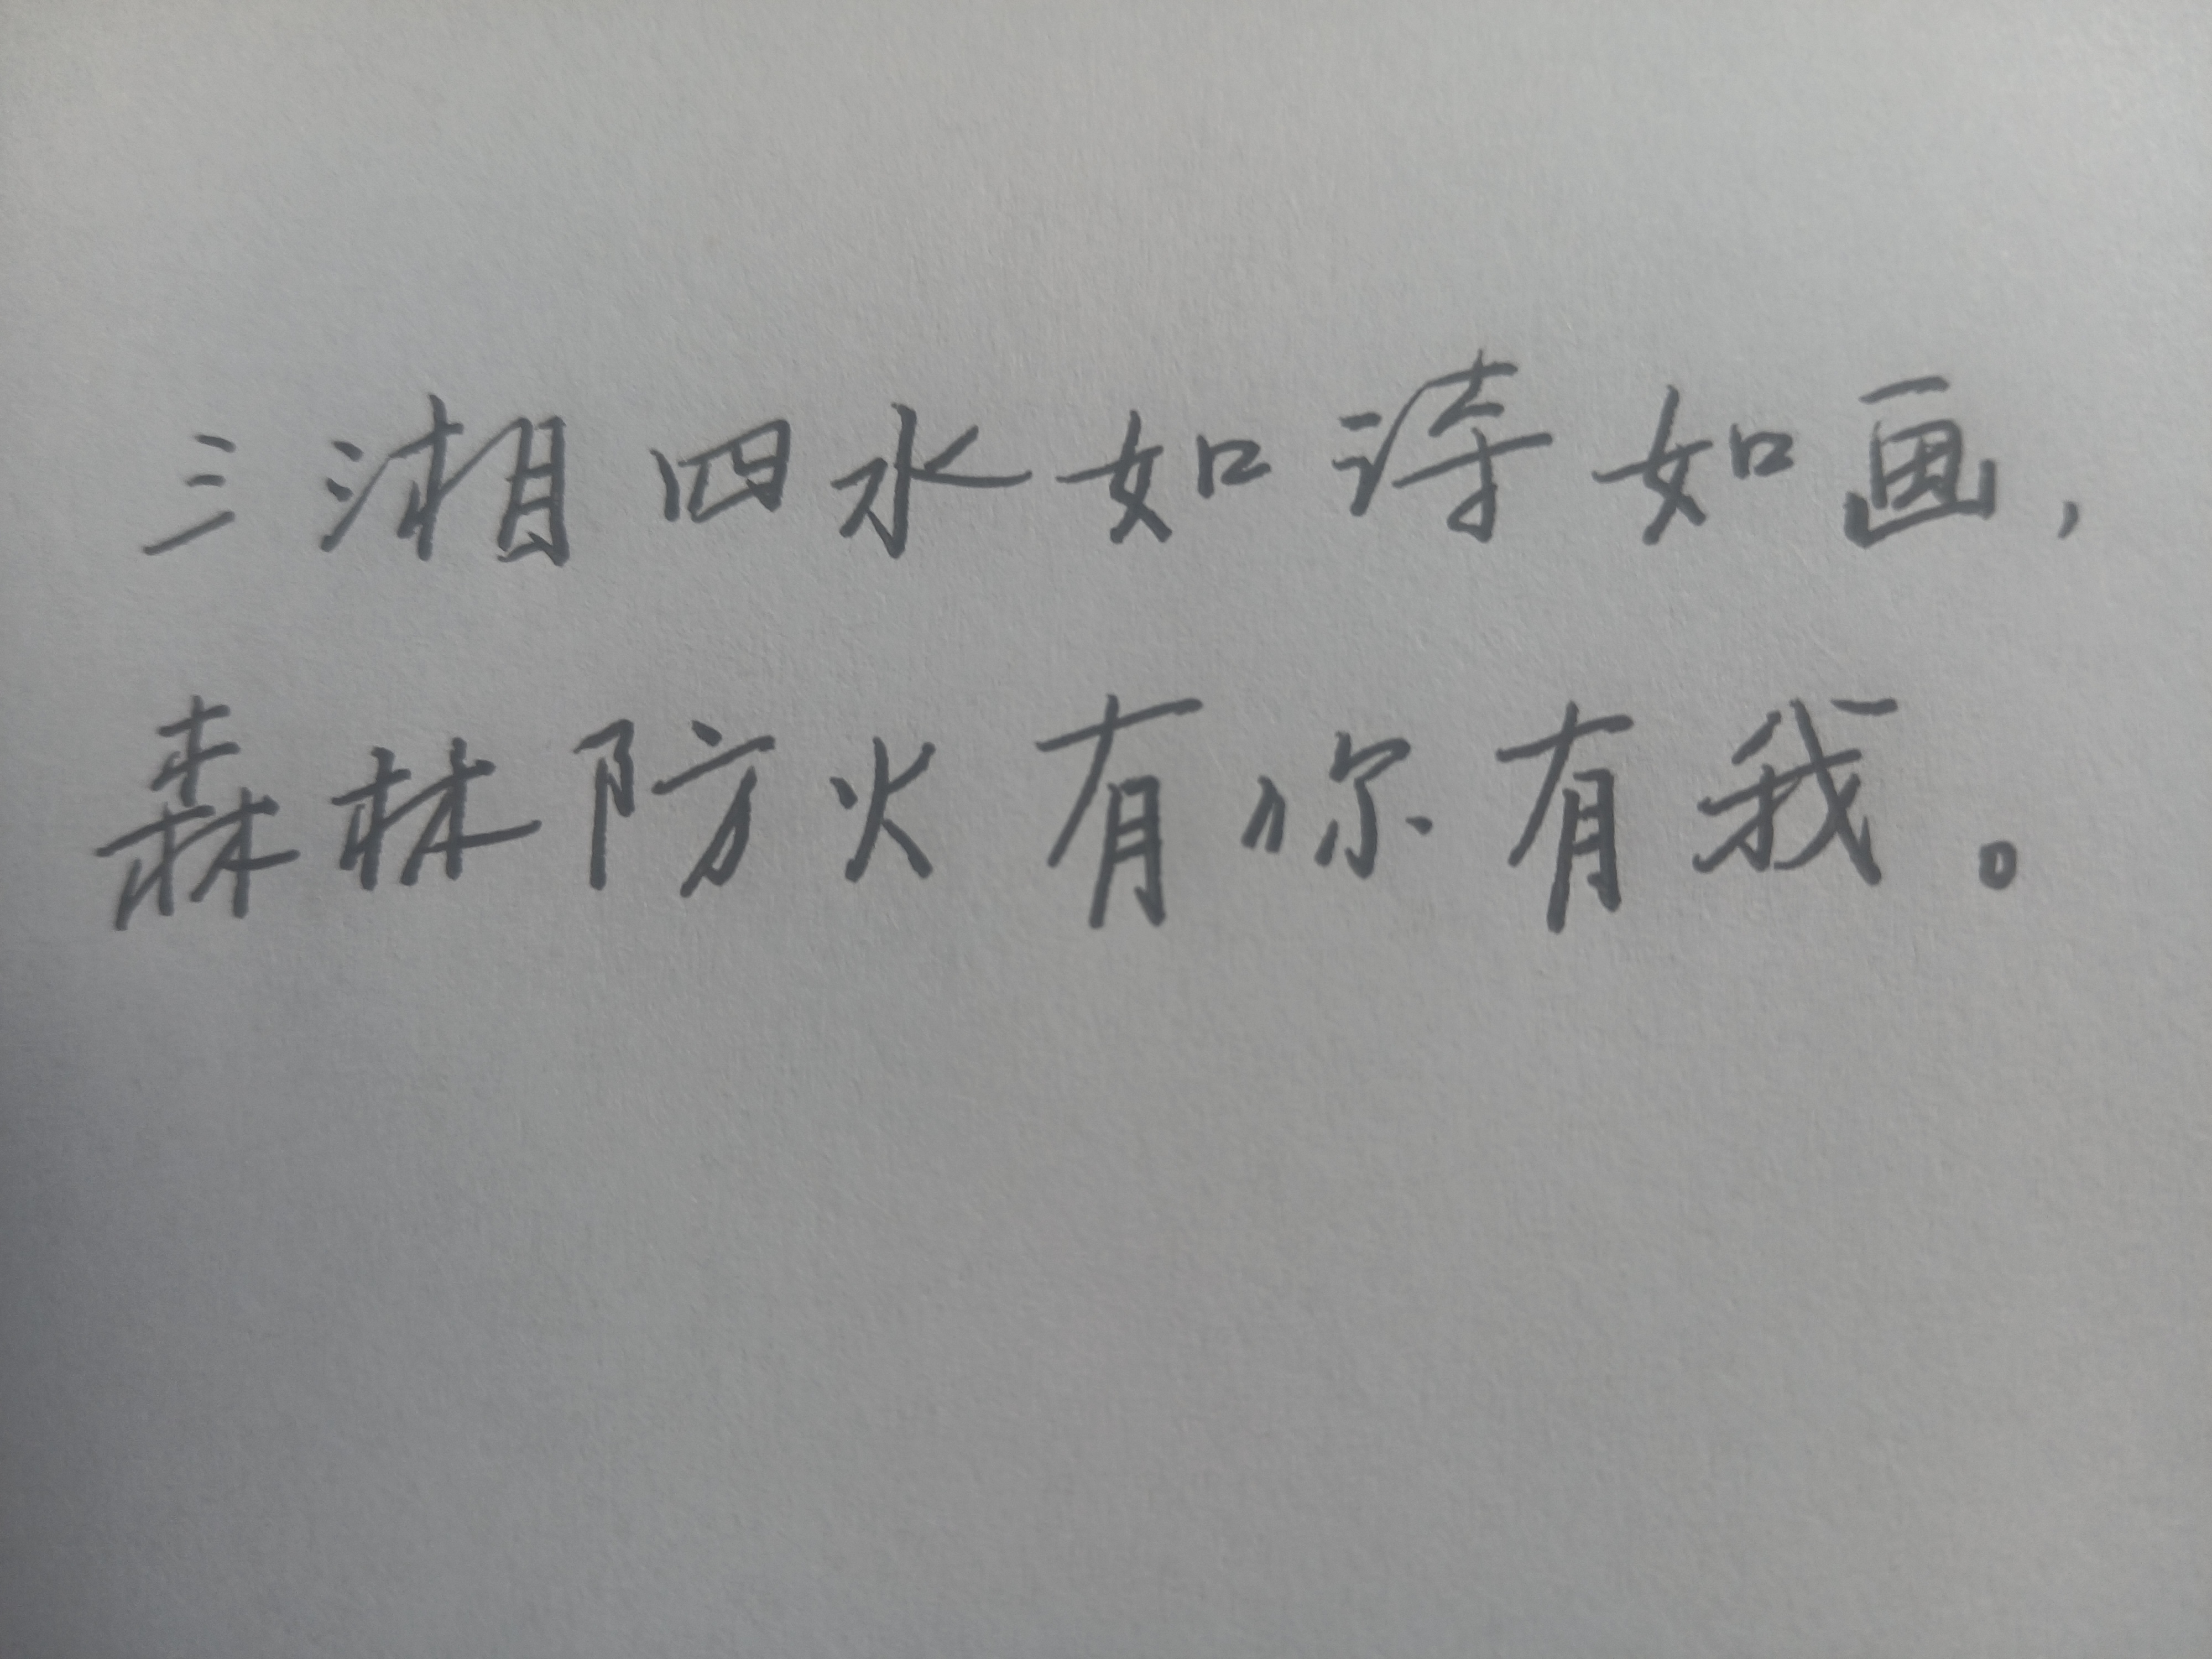 三湘四水如诗如画，
森林防火有你有我。